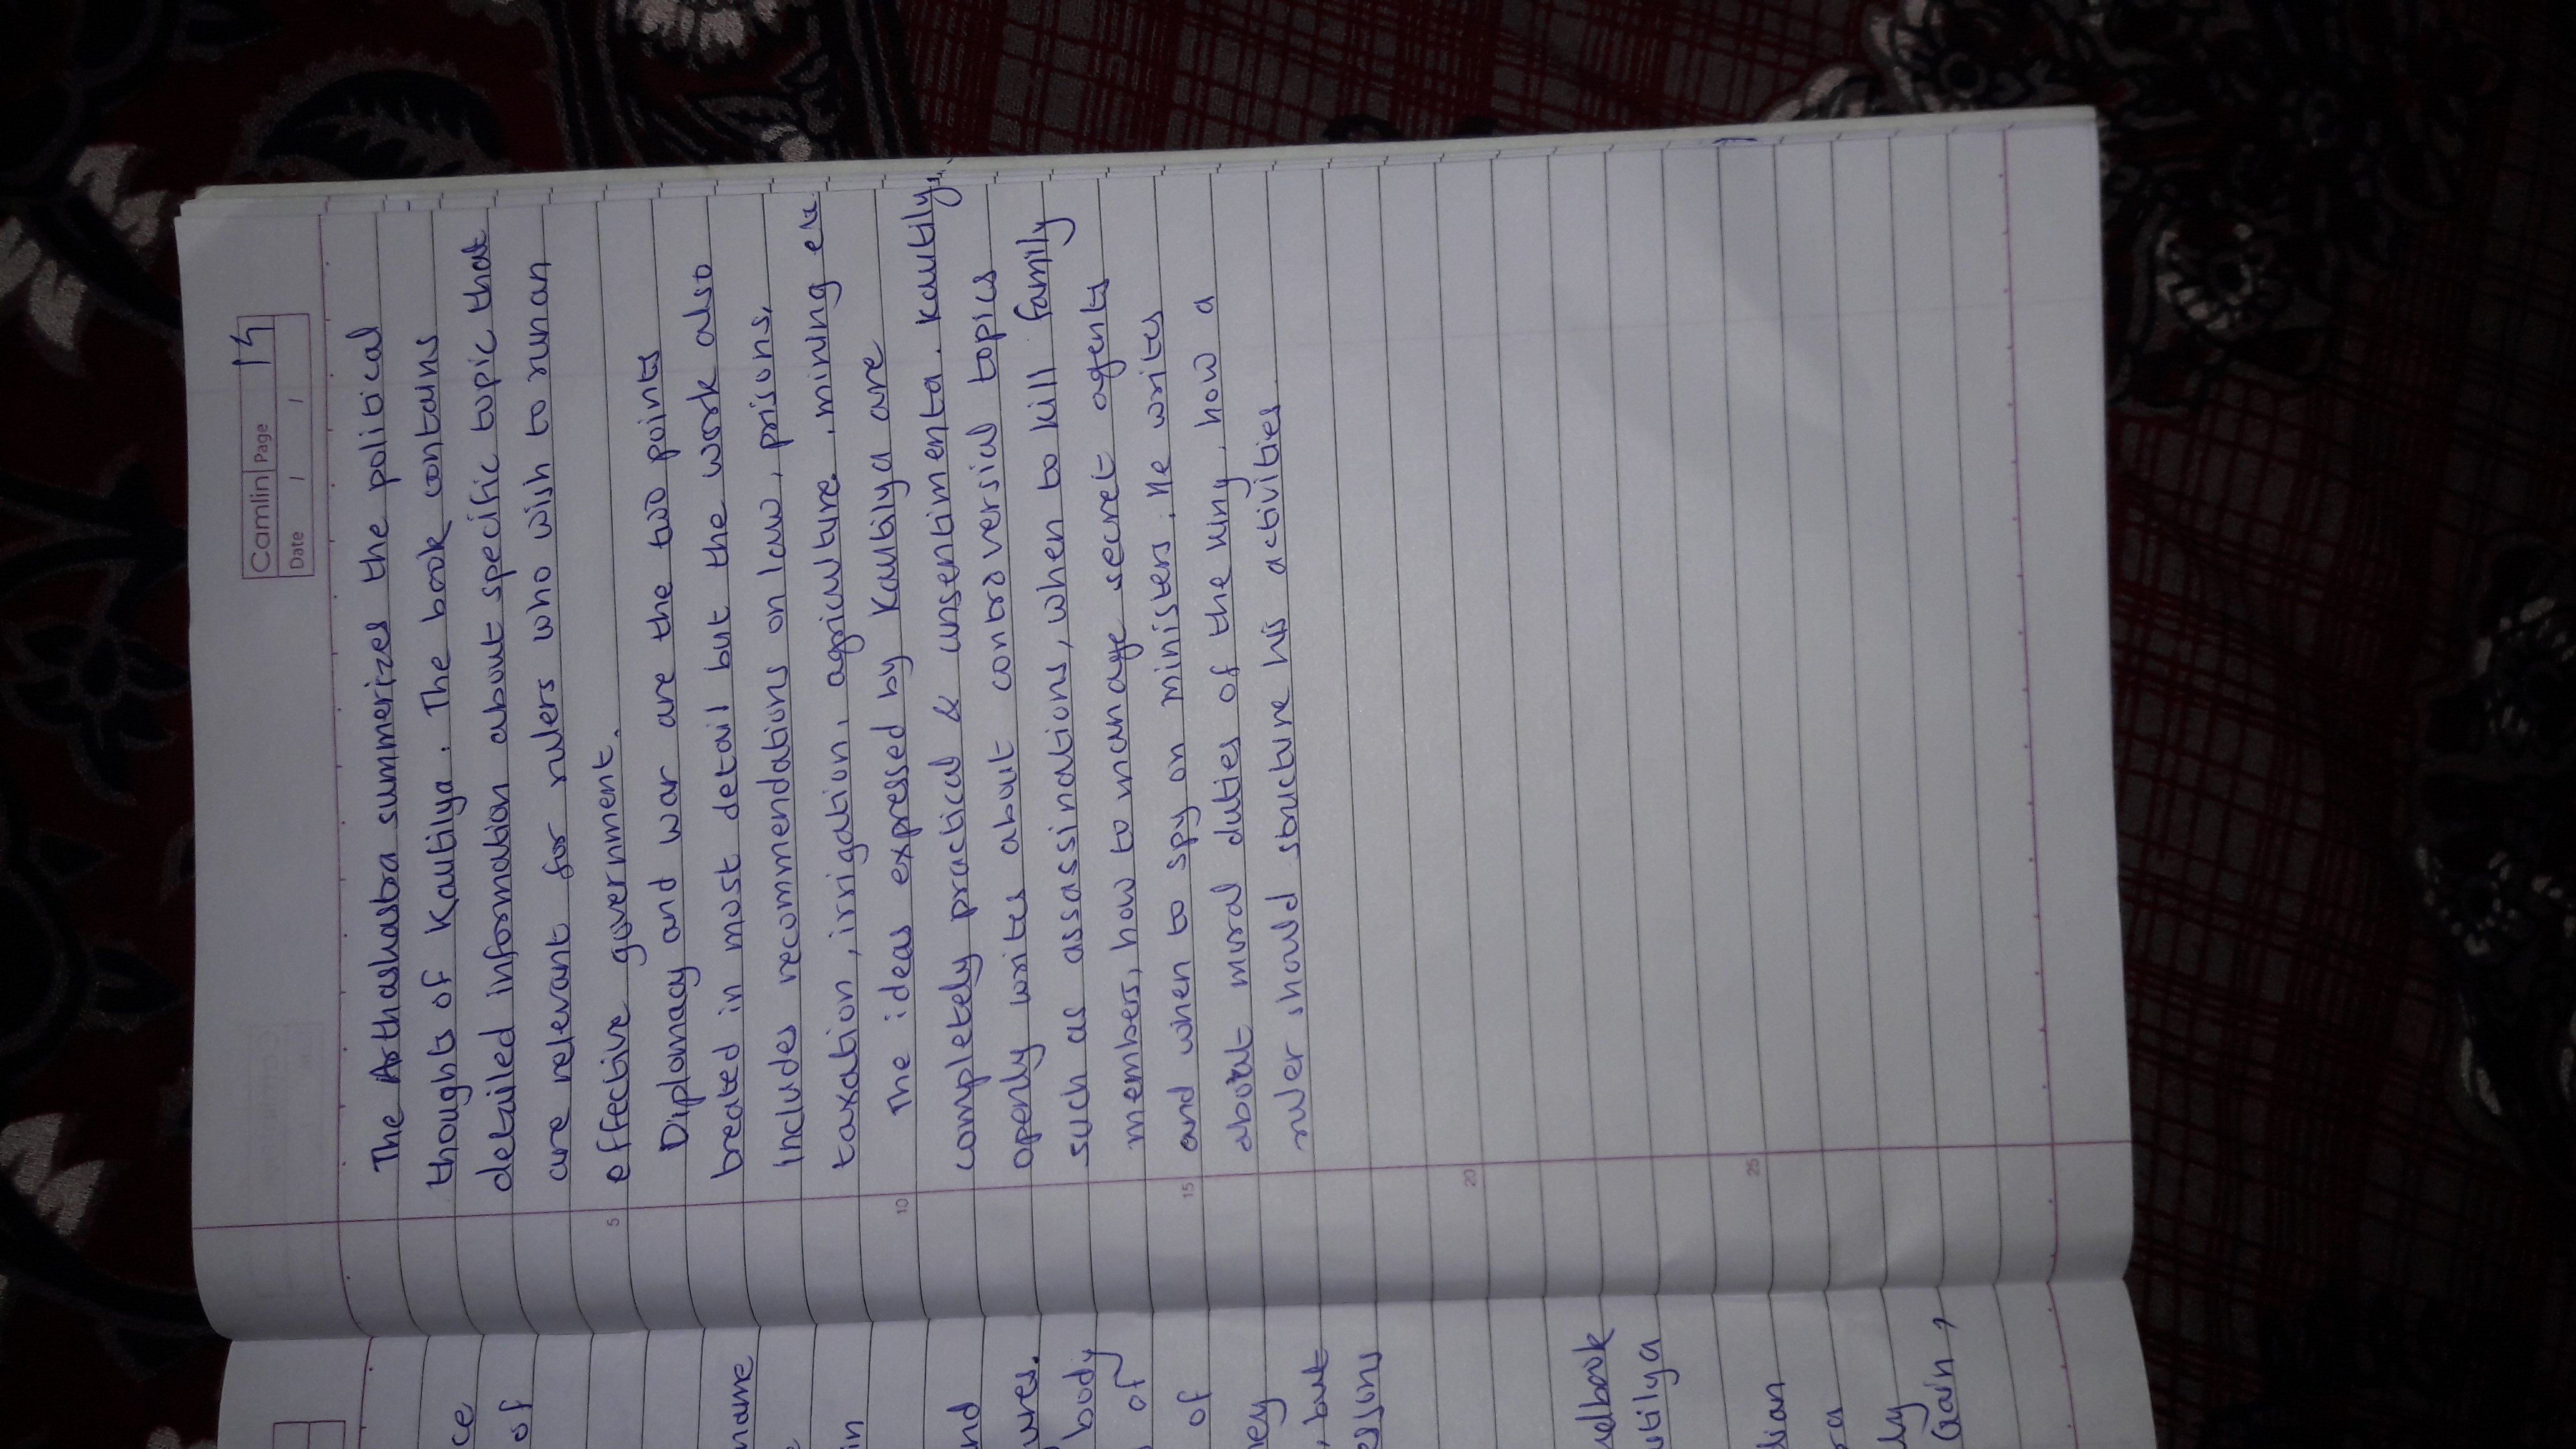 Camlin Page 15
Date / /
The Arthashastra summerizes the political
thoughts of Kautilya. The book contains
detailed information about specific topic that
are relevant for rulers who wish to run an
5 effective government.
Diplomacy and war are the two points
treated in most detail but the work also
includes recommendations on law, prisons,
taxation, irrigation, agriculture, mining etc.
10 The ideas expressed by Kautilya are
completely practical & unsentimenta. Kautilya
openly writes about controversial topics
such as assassinations, when to kill family
members, how to manage secret agents
15 and when to spy on ministers. He writes
about moral duties of the king, how a
ruler should structure his activities
20
25
ce
of
name
in
nd
ures.
body
of
of
hey
, but
essons
ndbook
utilya
dian
ra
ly
Gain,